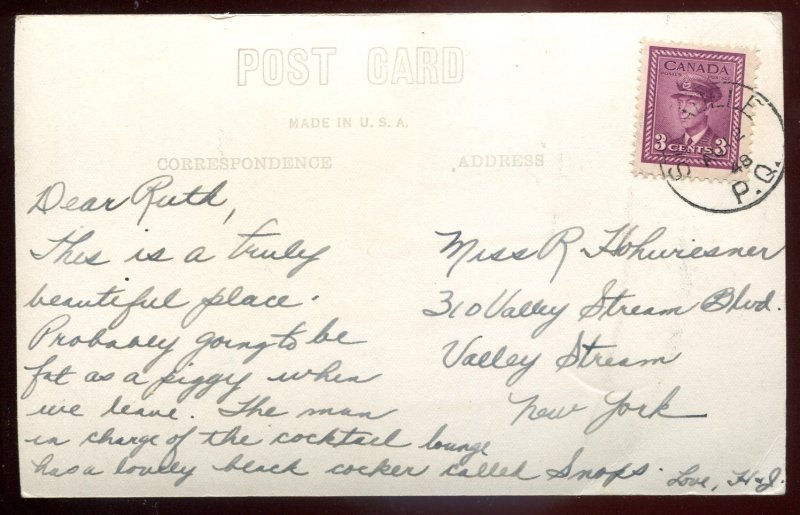 POST CARD
MADE IN U. S. A.
CORRESPONDENCE
ADDRESS
CANADA
POSTES POSTAGE
3 CENTS 3
48
P.Q.
Dear Ruth,
This is a truly
beautiful place.
Probabley going to be
fat as a piggy when
we leave. The man
in charge of the cocktail lounge
has a lovely black cocker called Snaps.
Love, H & J.
Miss R Hohwiesner
310 Valley Stream Blvd.
Valley Stream
New York